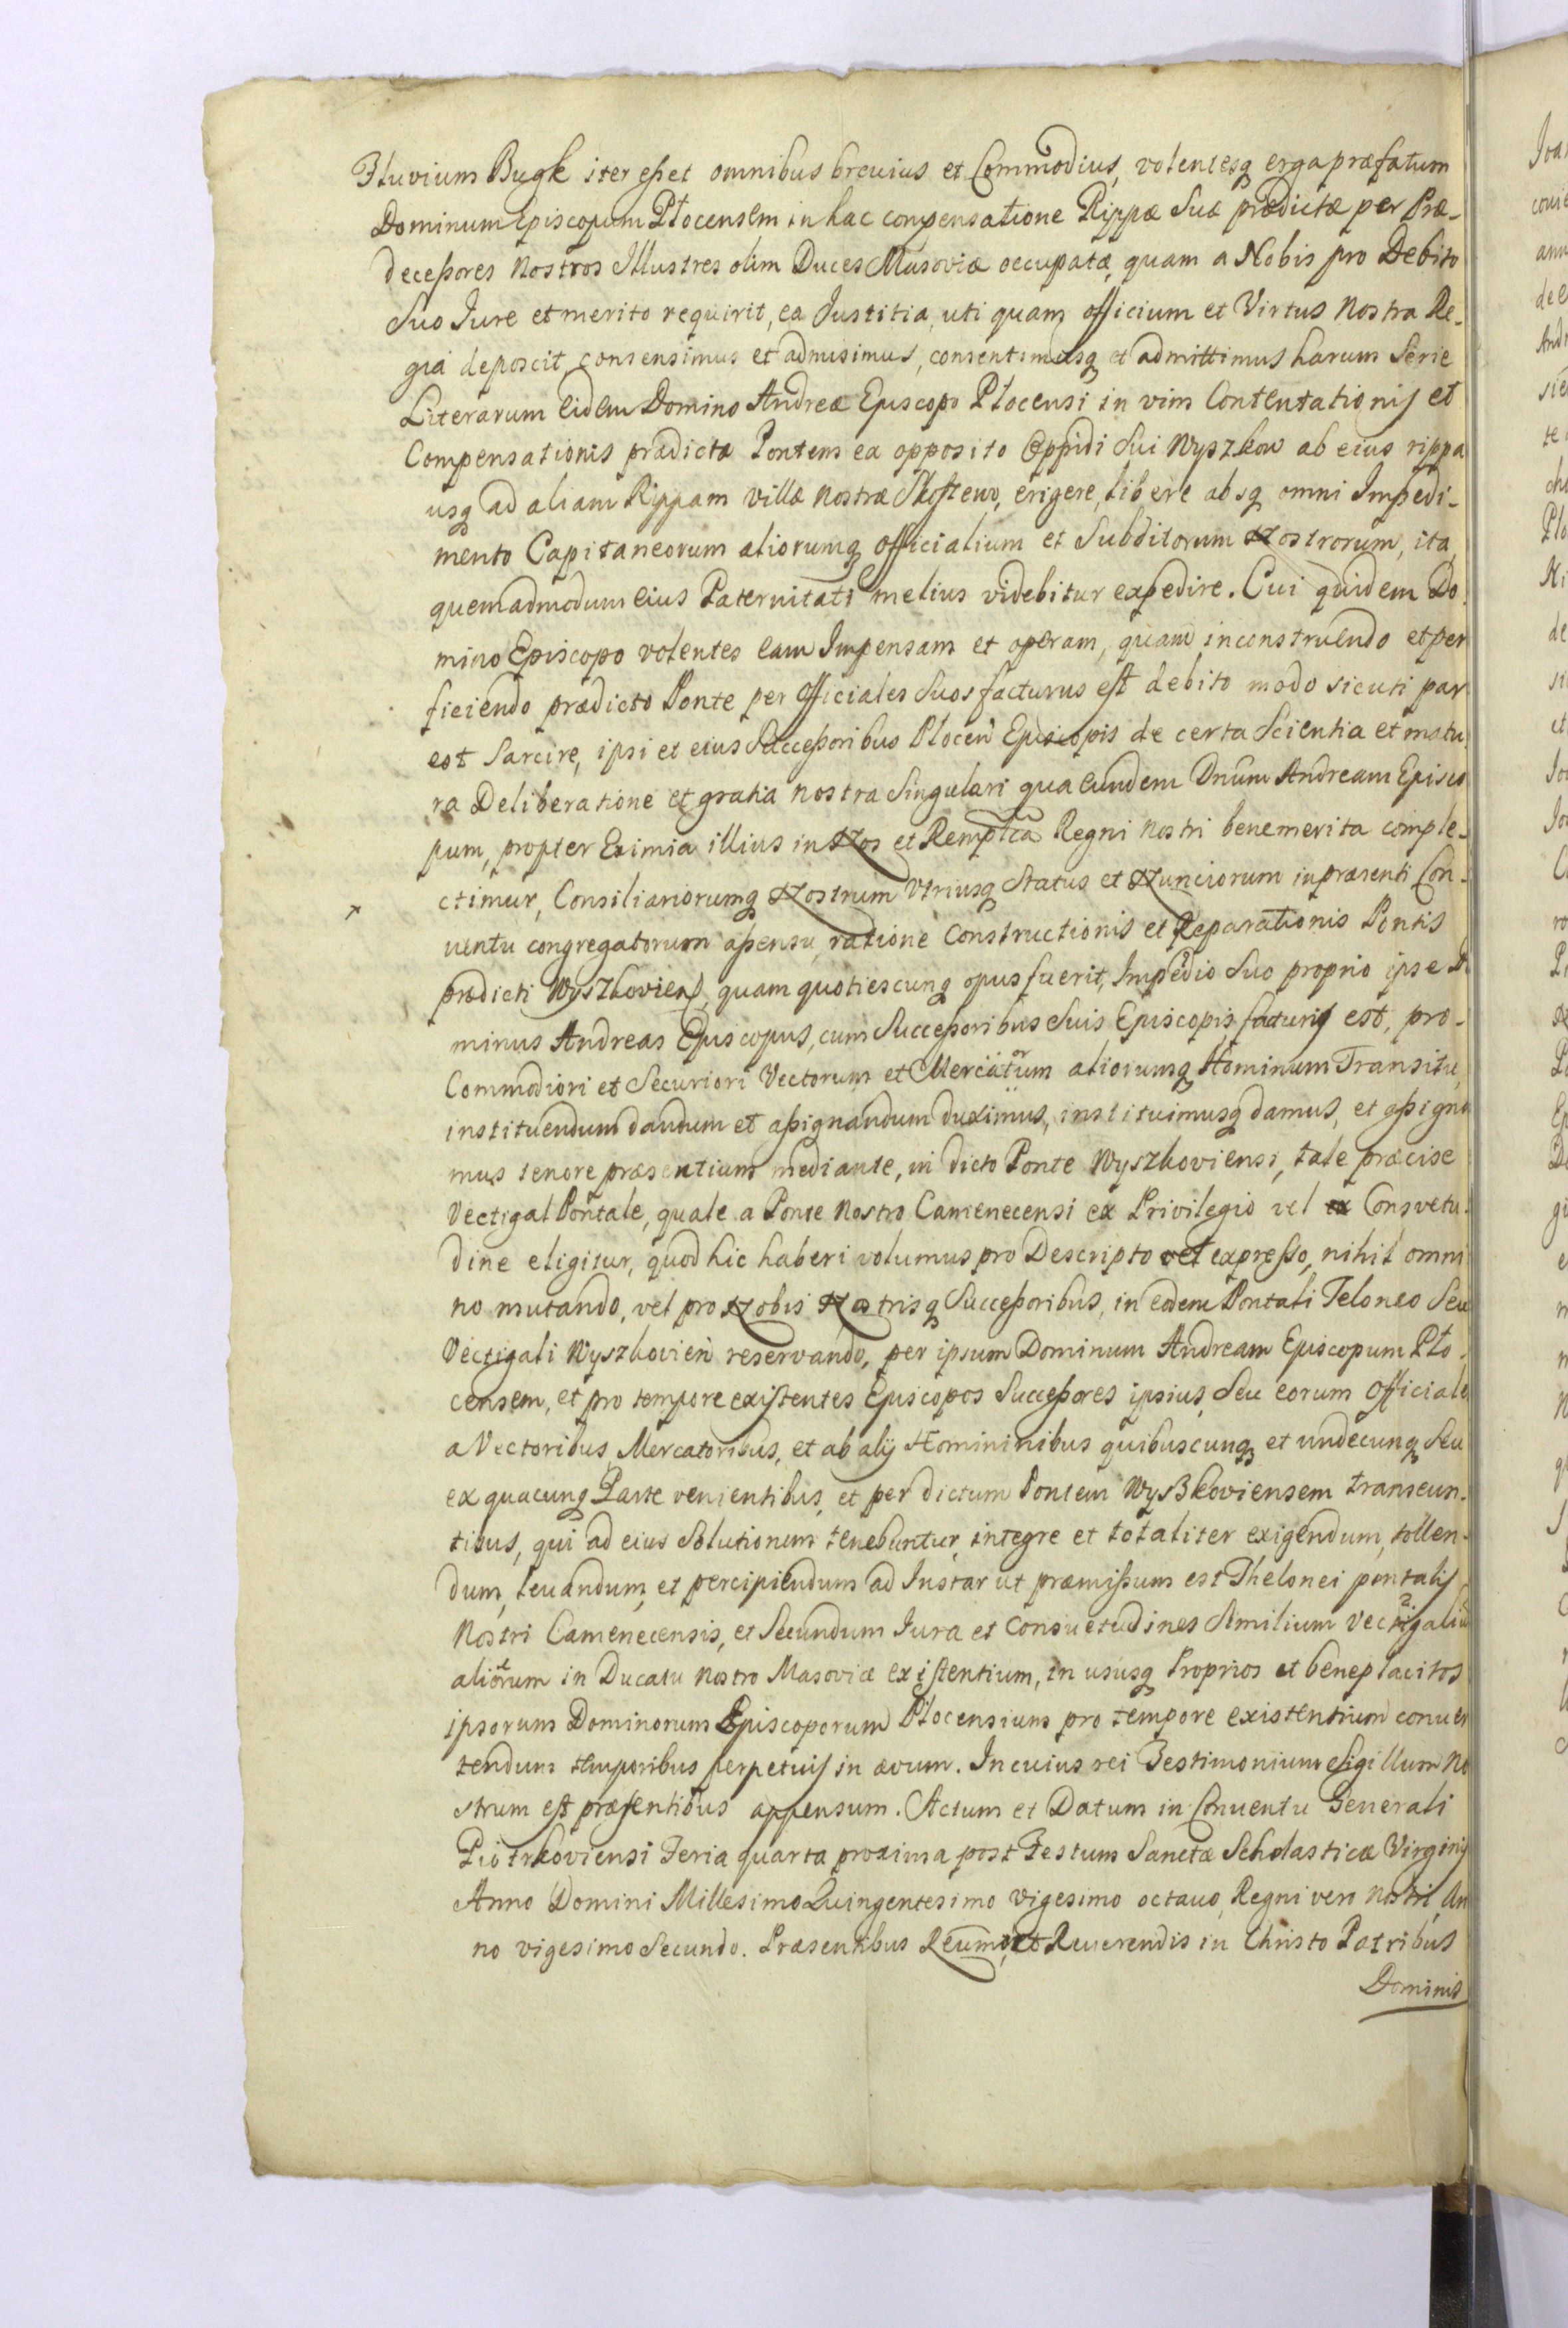 Fluvium Bugk iter eßet omnibus brevius et Commodius, volentesq erga præfatum
Dominum Episcopum Plocensem in hac compensatione Rippæ Suæ prædictæ per Præ-
deceßores Nostros Illustres olim Duces Masoviæ occupatæ, quam a Nobis pro Debito
Suo Jure et merito requirit, ea Justitia, uti quam officium et Virtus Nostra Re-
gia deposcit, consensimus et admisimus, consentimusq et admittimus harum Serie
Literarum Eidem Domino Andreæ Episcopo Plocensi in vim Contentationis et
Compensationis prædictæ Pontem ex opposito Oppidi Sui Wyszkow ab eius rippa
usq ad aliam Rippam villæ nostræ, erigere, libere absq omni Impedi-
mento Capitaneorum aliorumq Officialium et Subditorum Nostrorum, ita,
quemadmodum eius Paternitati melius videbitur expedire. Cui quidem Do-
mino Episcopo volentes eam Impensam et operam, quam in construendo et per
ficiendo prædicto Ponte per Officiales Suos facturus est debito modo sicuti par
est Sarcire, ipsi et eius Succeßoribus Plocen Episcopis de certa Scientia et matu-
ra Deliberatione et gratia nostra Singulari qua eundem Dnum Andream Episco
pum, propter Eximia illius in Nos et Remplcã Regni nostri benemerita comple-
ctimur, Consiliariorumq Nostrum Utriusq Status et Nunciorum in præsenti Con-
uentu congregatorum aßensu, ratione Constructionis et Reparationis Pontis
prædicti Wyszkovien, quam quotiescunq opus fuerit, Impedio Suo proprio ipse D
minus Andreas Episcopus, cum Succeßoribus Suis Episcopis facturus est, pro-
Commodiori et Securiori Vectorum et Mercatorum aliorumq Hominum Transitu,
instituendum dandum et aßignandum duximus, instituimusq damus, et aßigna
mus tenore præsentium mediante, in dicto Ponte Wyszkoviensi, tale præcise
Vectigal Pontale, quale a Ponte Nostro Camenecensi ex Privilegio vel ex Consvetu-
dine eligitur, quod hic haberi volumus pro Descripto vel expresso, nihil omni
no mutando, vel pro Nobis Nostrisq Succeßoribus, in eodem Pontali Teloneo Seu
Vectigali Wyszkovien reservando, per ipsum Dominum Andream Episcopum Plo-
censem, et pro tempore existentes Episcopos Succeßores ipsius, Seu eorum Officiale
a Vectoribus, Mercatoribus, et ab alij Homininibus quibuscunq et undecunq Seu
ex quacunq Parte venientibus, et per dictum Pontem Wyszkoviensem transeun-
tibus, qui ad eius Solutionem tenebuntur, integre et totaliter exigendum, tollen-
dum, leuandum, et percipiendum ad Instar ut præmißum est Thelonei pontalis
Nostri Camenecensis, et Secundum Jura et Consuetudines Similium Vectigaliu
aliorum in Ducatu nostro Masoviæ existentium, in ususq Proprios et beneplacitos
ipsorum Dominorum Episcoporum Plocensium pro tempore existentium conuer
tendum temporibus perpetuis in ævum. In cuius rei Testimonium Sigillum No
strum est præsentibus appensum. Actum et Datum in Conuentu Generali
Piotrkoviensi Feria quarta proxima post Festum Sanctæ Scholasticæ Virginis
Anno Domini Millesimo Quingentesimo vigesimo octauo, Regni vero Nostri, An
no vigesimo Secundo. Præsentibus Reumo, et Reuerendis in Christo Patribus
Dominis